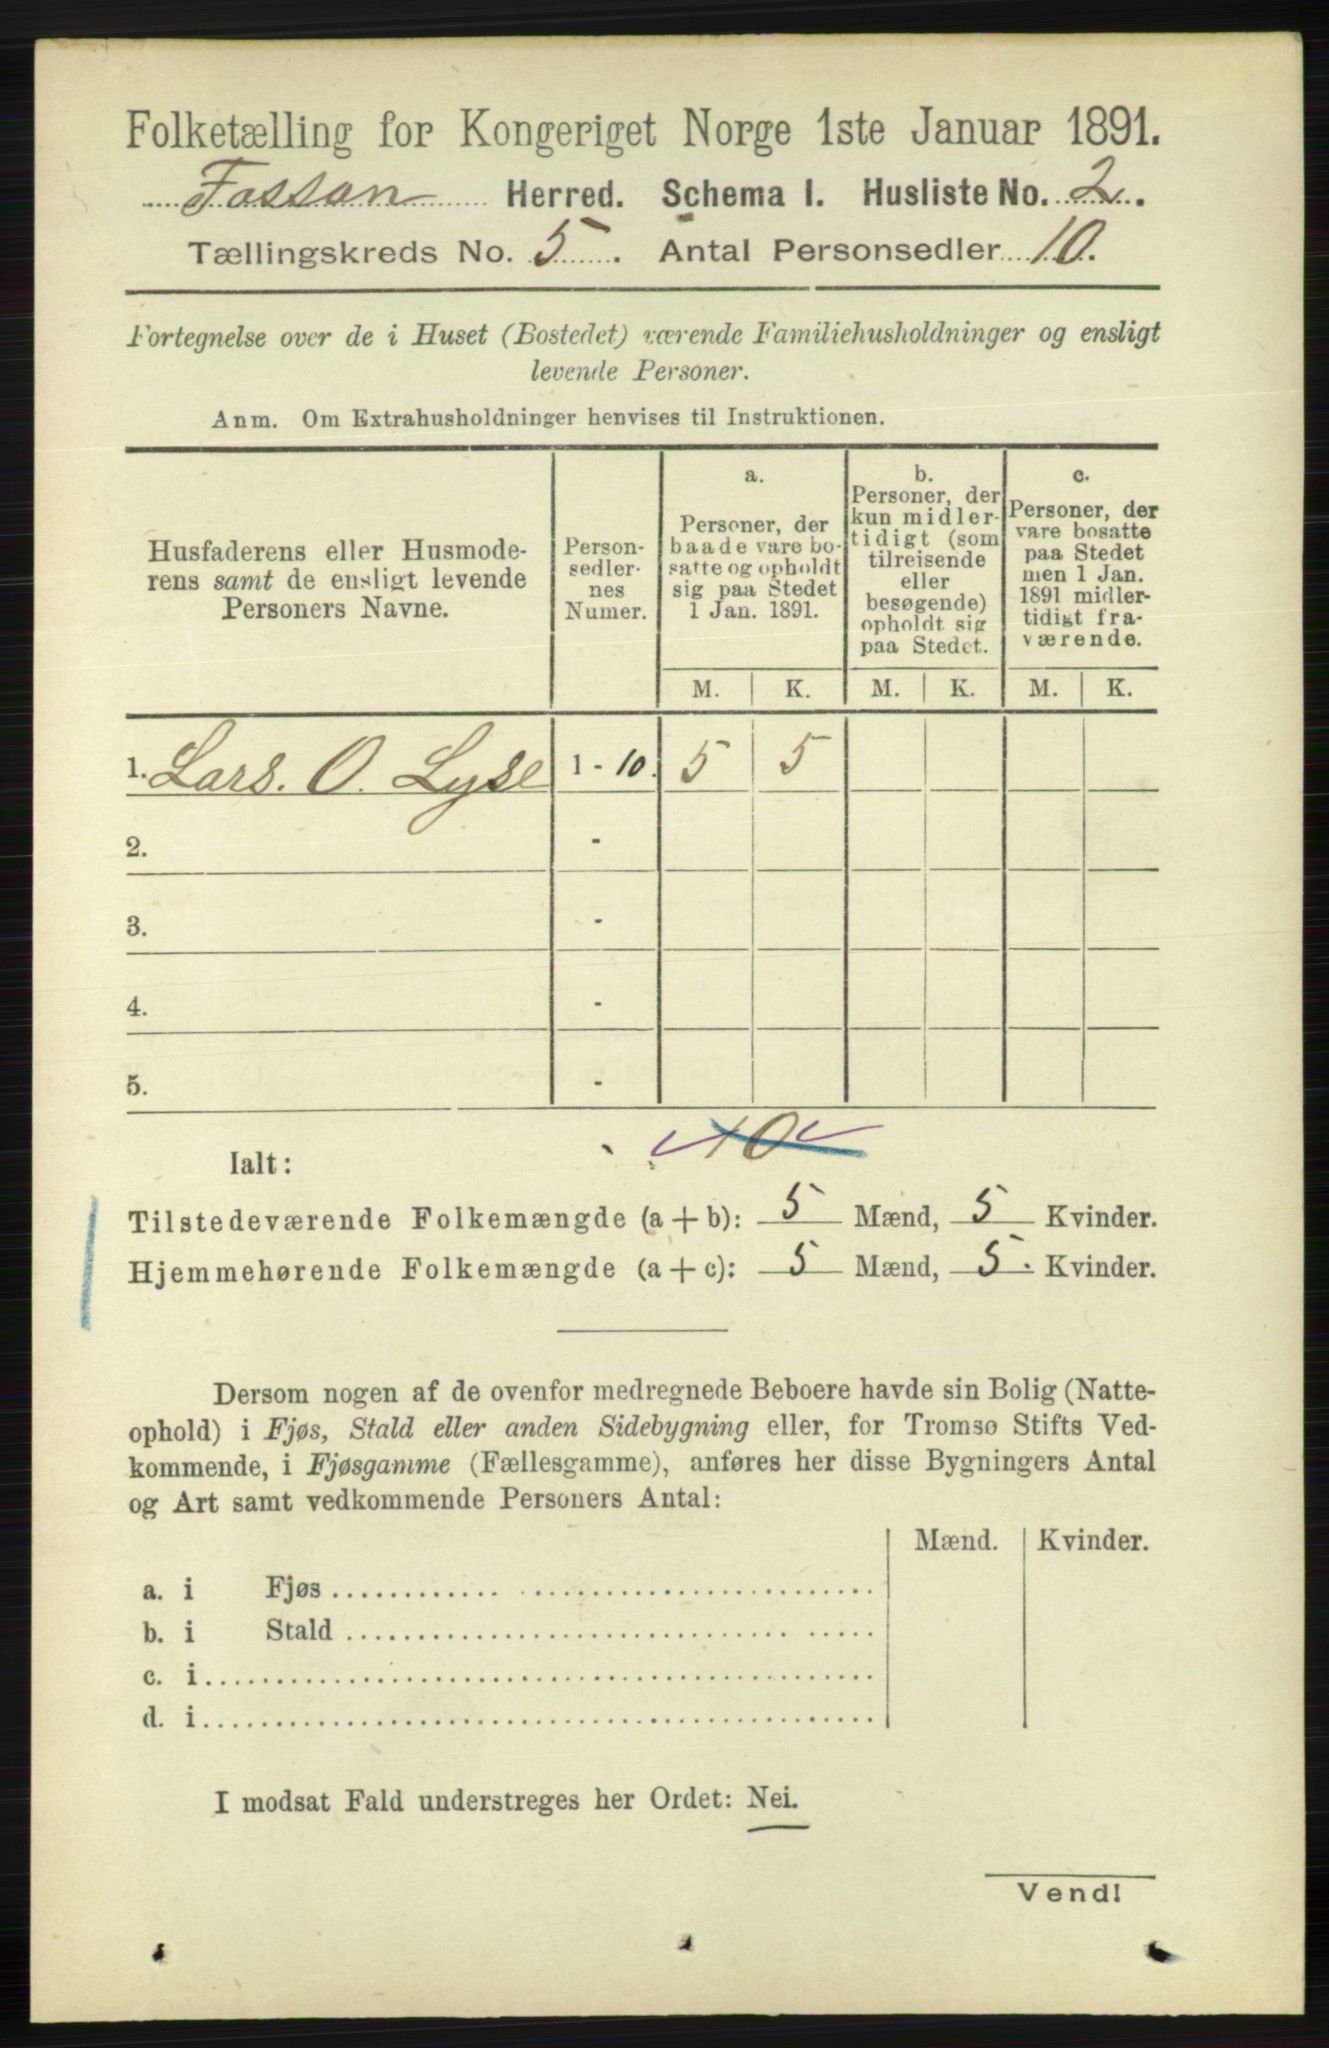 Folketælling for Kongeriget Norge 1ste Januar 1891.
Fossan Herred. Schema I. Husliste No. 2.
Tællingskreds No. 5. Antal Personsedler 10.
Fortegnelse over de i Huset (Bostedet) værende Familiehusholdninger og ensligt
levende Personer.
Anm. Om Extrahusholdninger henvises til Instruktionen.
Husfaderens eller Husmode-
rens samt de ensligt levende
Personers Navne.
Person-
sedler-
nes
Numer.
a.
Personer, der
baade vare bo-
satte og opholdt
sig paa Stedet
1 Jan. 1891.
b.
Personer, der
kun midler-
tidigt (som
tilreisende
eller
besøgende)
opholdt sig
paa Stedet.
c.
Personer, der
vare bosatte
paa Stedet
men 1 Jan.
1891 midler-
tidigt fra-
værende.
M. K. M. K. M. K.
1. Lars. O. Lyse 1 - 10. 5 5
2. -
3. -
4. -
5. -
10
Ialt:
Tilstedeværende Folkemængde (a + b): 5 Mænd, 5 Kvinder.
Hjemmehørende Folkemængde (a + c): 5 Mænd, 5. Kvinder.
Dersom nogen af de ovenfor medregnede Beboere havde sin Bolig (Natte-
ophold) i Fjøs, Stald eller anden Sidebygning eller, for Tromsø Stifts Ved-
kommende, i Fjøsgamme (Fællesgamme), anføres her disse Bygningers Antal
og Art samt vedkommende Personers Antal:
Mænd. Kvinder.
a. i Fjøs
b. i Stald
c. i
d. i
I modsat Fald understreges her Ordet: Nei.
Vend!